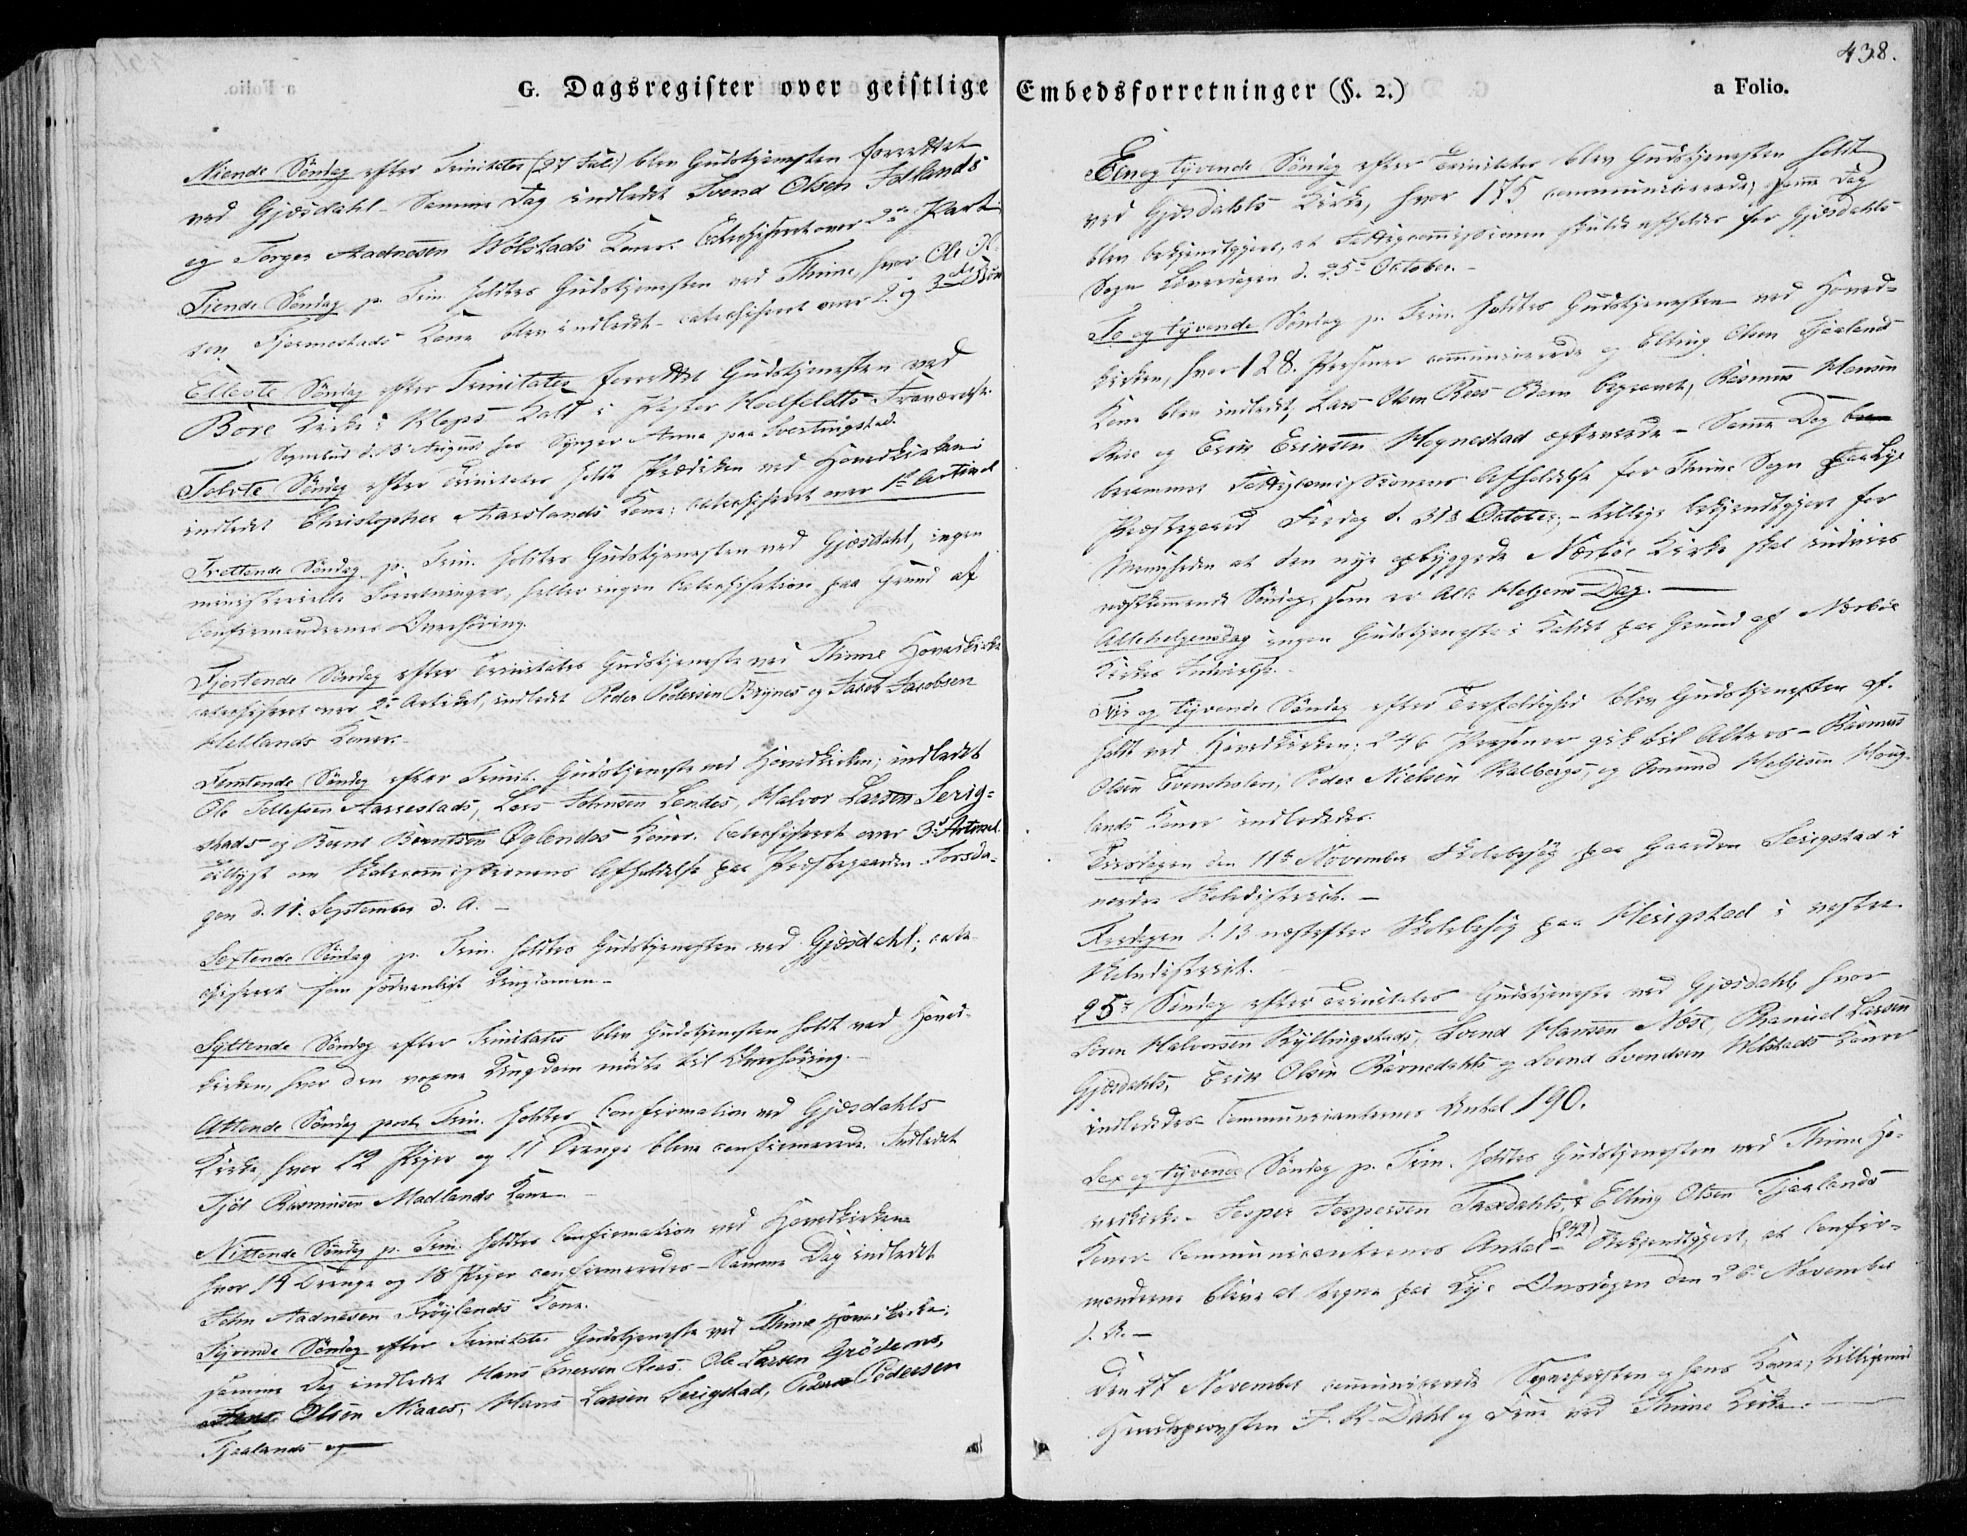 G. Dagsregister over geistlige
Niende Søndag efter Trinitatis (27 Juli) blev Gudstjenesten forrettet
ved Gjæsdahl - Samme Dag indledet Svend Olsen Fotlands
og Torger Aadnesen Wolstads Koner. Catechiseret over 2den Part
Tiende Søndag p. Trin. holdtes Gudstjenesten ved Thime, hvor Ole Ol-
sen Tjermestads Kone blev indledet - catechiseret over 2. og 3die Bøn
Ellevte Søndag efter Trinitatis forrettet Gudstjenesten ved
Bore Kirke i Kleps Kald i Pastor Fraværelse
Sognebud d. 3 August hos Anna paa Svertingstad.
Tolvte Søndag efter Trinitatis holdt Prædiken ved Hovedkirken:
indledet Christopher Aarslands Kone; catechiseret over 1ste Artikel
Trettende Søndag p. Trin. holdtes Gudstjenesten ved Gjæsdahl, ingen
ministerielle Forretninger, heller ingen Catechisation paa Grund af
Confirmandernes Overhøring.
Fjortende Søndag efter Trinitatis Gudstjeneste ved Thime Hovedkirke
catechiseret over 2. Artikel, indledet Peder Pedersen Brynes og Jacob Jacobsen
Hellands Koner.
Femtende Søndag efter Trinit. Gudstjeneste ved Hovedkirken; indledet
Ole Tollefsen Aarrestads, Lars Johnsen Lendes, Halvor Larsen Serig-
stads og Bernt Berntsen Øglendes Koner. Catechiseret over 3die Artikel
Tillyst om Skolecommissionens Afholdelse paa Præstegaarden Torsda-
gen d. 11. September d. A. -
Sextende Søndag p. Trin. holdtes Gudstjenesten ved Gjæsdahl; cate-
chiseret som sædvanligt Ungdommen -
Syttende Søndag efter Trinitatis blev Gudstjenesten holdt ved Hoved-
kirken, hvor den voxne Ungdom mødte til Overhøring. -
Attende Søndag post Trin. holdtes Confirmation ved Gjæsdahls
Kirke, hvor 12 Piger og 11 Drenge bleve confirmerede. Indledet
Tjøl Rasmusen Madlands Kone.
Nittende Søndag p. Trin. holdtes Confirmation ved Hovedkirken
hvor 14 Drenge og 18 Piger confirmeredes - Samme Dag indledet
John Aadnesen Frøylands Kone.
Tyvende Søndag efter Trinitatis Gudstjeneste ved Thime Hovedkirke;
samme Dag indledet Hans Enersen Rees. Ole Larsen Grødems,
Olsen Niaaes, Hans Larsen Serigstad, Pedersen
Tjaalands og
438.
Embedsforretninger (§. 2.)
a Folio.
Een og tyvende Søndag efter Trinitatis blev Gudstjenesten holdt
ved Gjæsdahls Kirke, hvor 175 communicerede; samme Dag
blev bekjendtgjort, at Fattigcommissionen skulde afholdes for Gjæsdahls
Sogn Løverdagen d. 25de October. -
To og tyvende Søndag p. Trin. holdtes Gudstjenesten ved Hoved-
kirken, hvor 128. Personer communicerede og Elling Olsen Tjaalands
Kone blev indledet, Lars Olsen Rees Barn begravet, Rasmus Hansen
og Erik Eriksen Hognestad - Samme Dag
berammet Fattigcommissionens Afholdelse for Thime Sogn paa Lye
Præstegaard Fredag d. 31te October; - tillige bekjendtgjort for
Menigheden at den nye opbyggede Nærbøe Kirke skal indvies
næstkommende Søndag, som er Alle Helgens Dag. -
Allehelgensdag ingen Gudstjeneste i Kaldet paa Grund af Nærbøe
Kirkes Indvielse.
Fire og tyvende Søndag efter Trefoldighed blev Gudstjenesten af-
holdt ved Hovedkirken; 246 Personer gik til Alters - Rasmus
Olsen Peder Nielsen Kalbergs, og Omund Heljesen Houg-
lands Koner indlededes.
Tirsdagen den 11te November Skolebesøg paa Gaarden Serigstad i
nordre Skoledistrict. -
Fredagen d. 13 næstefter Skolebesøg paa Herigstad i vestre
Skoledistrict.
25de Søndag efter Trinitatis Gudstjeneste ved Gjæsdahls hvor
Søren Halvorsen Kyllingstads, Svend Hansen Næse, Ranuel Larsen
Gjæsdahls, Erik Olsen Ravnedahls og Svend Svendsen Wolstads Koner
indlededes - Communicanternes Antal 190.
Sex og tyvende Søndag p. Trin. holdtes Gudstjenesten ved Thime Ho-
vedkirke - Jesper Jespersen Taxdahls, & Elling Olsen Tjaalands
Koner. Communicanternes Antal (242) - Bekjendtgjort, at Confir-
manderne bleve at tegne paa Lye Onsdagen den 26de November
d. A. -
Den 27 November communicerede Sognepresten og hans Kone, tilligemed
Herredsprovsten F. K. Dahl og Frue ved Thime Kirke. -